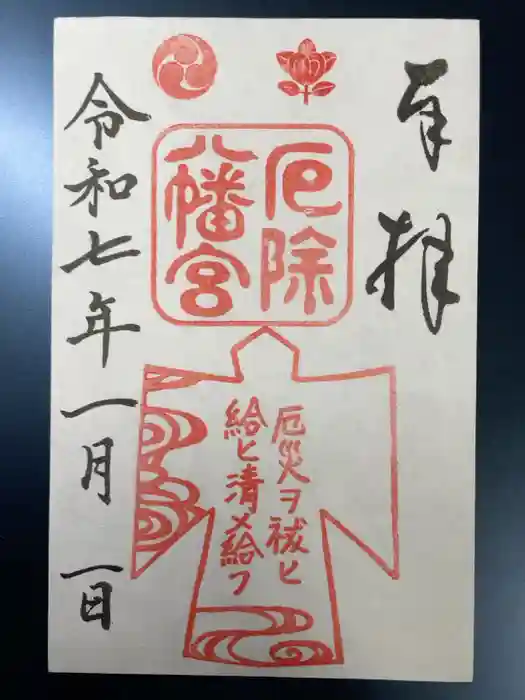 奉拝
厄除
八幡宮
厄災ヲ祓ヒ
給ヒ清メ給フ
令和七年一月一日